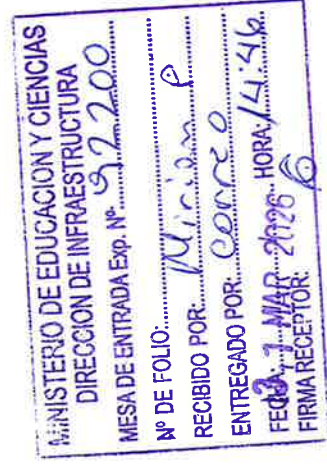 MINISTERIO DE EDUCACION Y CIENCIAS
DIRECCION DE INFRAESTRUCTURA
MESA DE ENTRADA Exp. Nº 92200
Nº DE FOLIO:
RECIBIDO POR: Mirian P
ENTREGADO POR: Correo
FECHA: 31 MAR 2026 HORA: 14:46
FIRMA RECEPTOR: